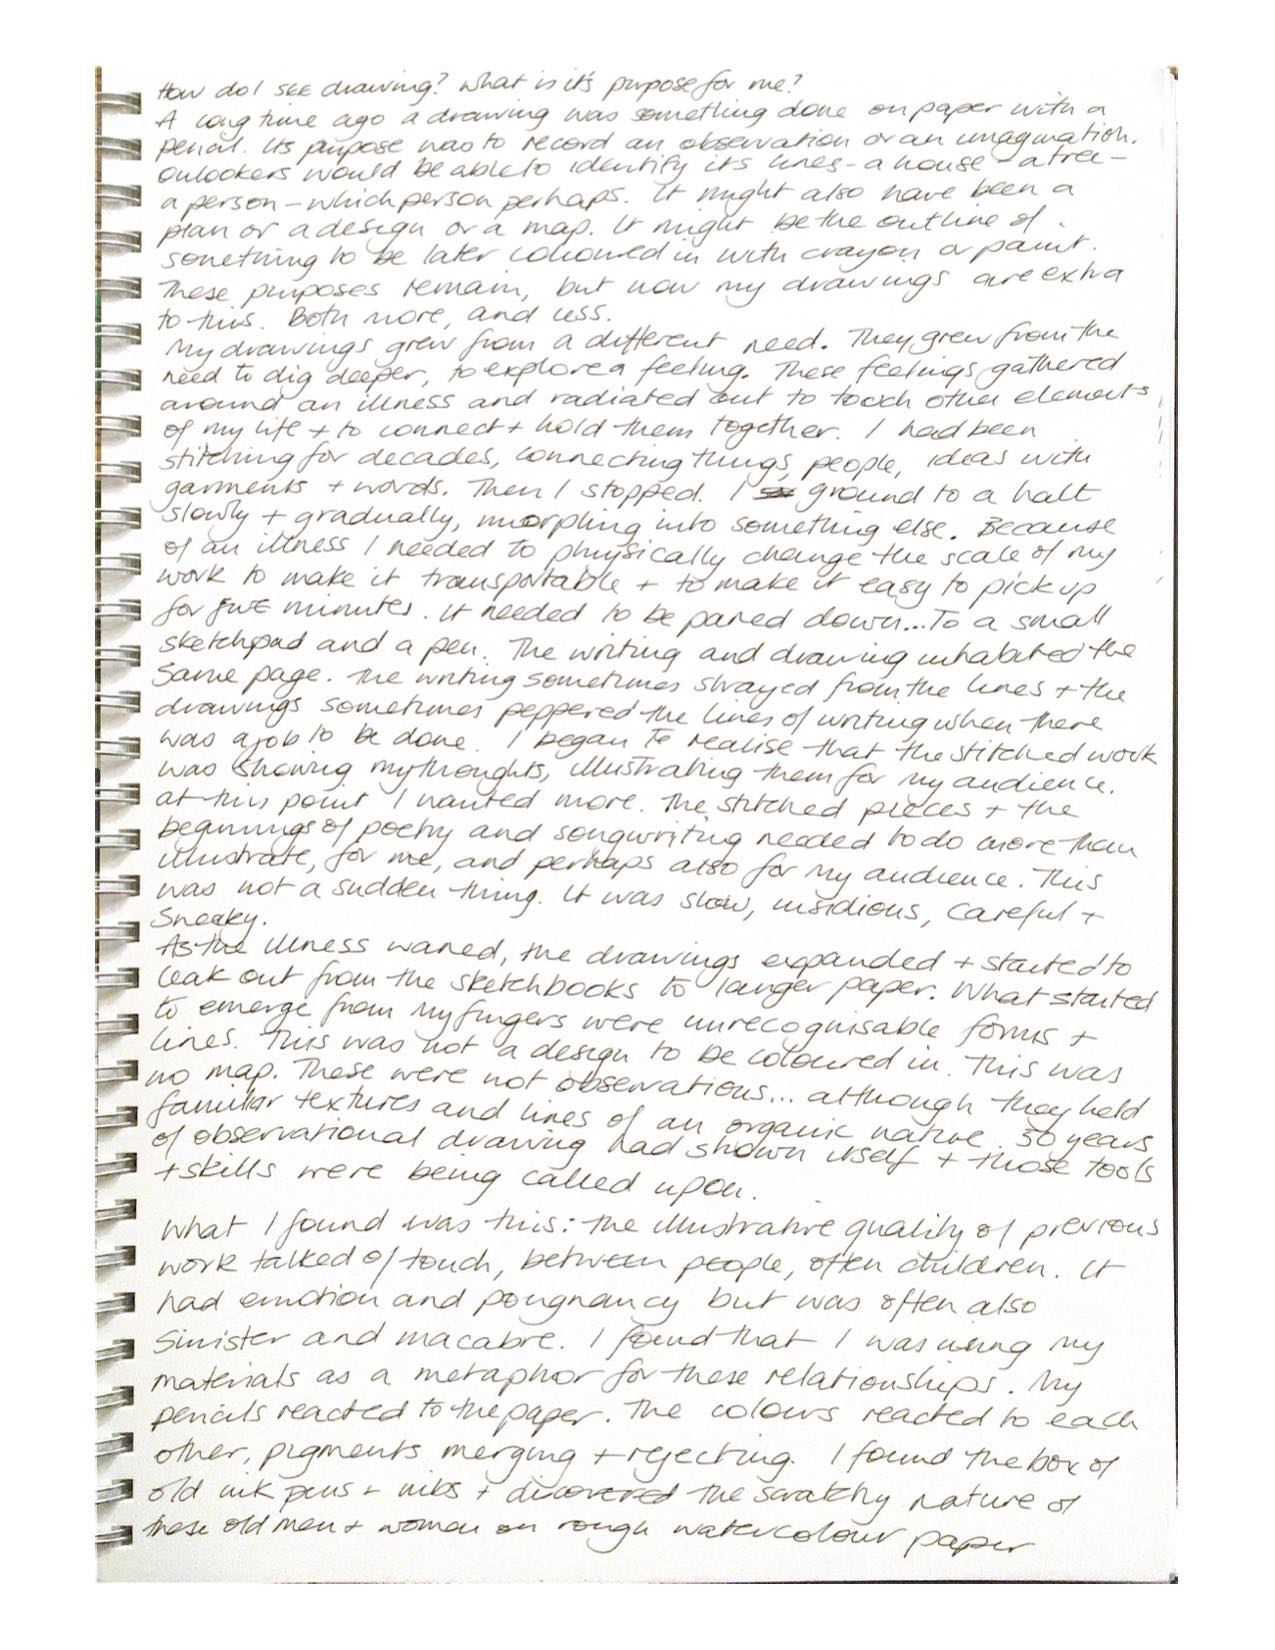 How do I see drawing? What is it's purpose for me?
A long time ago a drawing was something done on paper with a
pencil. Its purpose was to record an observation or an imagination.
Onlookers would be able to identify its lines - a house - a tree -
a person - which person perhaps. It might also have been a
plan or a design or a map. It might be the outline of
something to be later coloured in with crayon or paint.
These purposes remain, but now my drawings are extra
to this. Both more, and less.
My drawings grew from a different need. They grew from the
need to dig deeper, to explore a feeling. These feelings gathered
around an illness and radiated out to touch other elements
of my life + to connect + hold them together. I had been
stitching for decades, connecting things, people, ideas with
garments + words. Then I stopped. I ground to a halt
slowly + gradually, morphing into something else. Because
of an illness I needed to physically change the scale of my
work to make it transportable + to make it easy to pick up
for five minutes. It needed to be pared down... To a small
sketchpad and a pen. The writing and drawing inhabited the
same page. The writing sometimes strayed from the lines + the
drawings sometimes peppered the lines of writing when there
was a job to be done. I began to realise that the stitched work
was showing my thoughts, illustrating them for my audience.
at this point I wanted more. The stitched pieces + the
beginnings of poetry and songwriting needed to do more than
illustrate, for me, and perhaps also for my audience. This
was not a sudden thing. It was slow, insidious, careful +
sneaky.
As the illness waned, the drawings expanded + started to
leak out from the sketchbooks to larger paper. What started
to emerge from my fingers were unrecognisable forms +
lines. This was not a design to be coloured in. This was
no map. These were not observations... although they held
familiar textures and lines of an organic nature. 30 years
of observational drawing had shown itself + those tools
+ skills were being called upon.
What I found was this: the illustrative quality of previous
work talked of touch, between people, often children. It
had emotion and poignancy but was often also
sinister and macabre. I found that I was using my
materials as a metaphor for these relationships. My
pencils reacted to the paper. The colours reacted to each
other, pigments merging + rejecting. I found the box of
old ink pens + nibs + discovered the scratchy nature of
these old men + women on rough watercolour paper